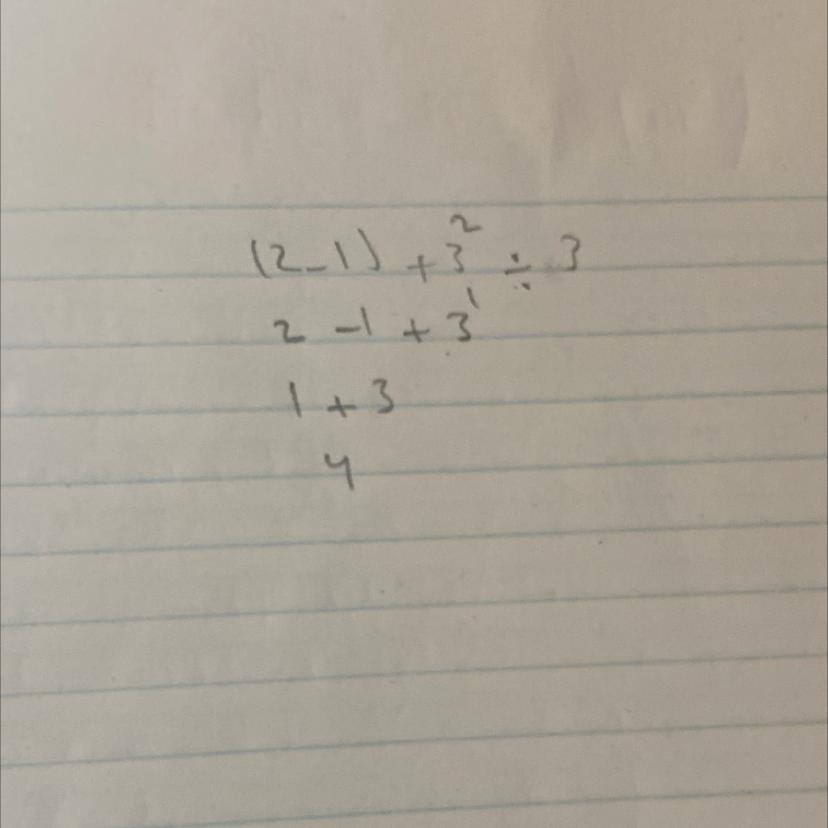 (2-1) + 3² ÷ 3
2 - 1 + 3¹
1 + 3
4